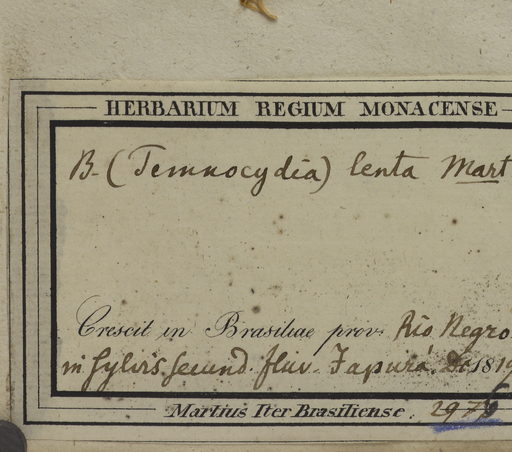 HERBARIUM REGIUM MONACENSE
B. (Temnocydia) lenta Mart
Crescit in Brasiliae prov. Rio Negro
in sylvis secund. fluv. Japurá. Dec 1819
Martius Iter Brasiliense. 2976